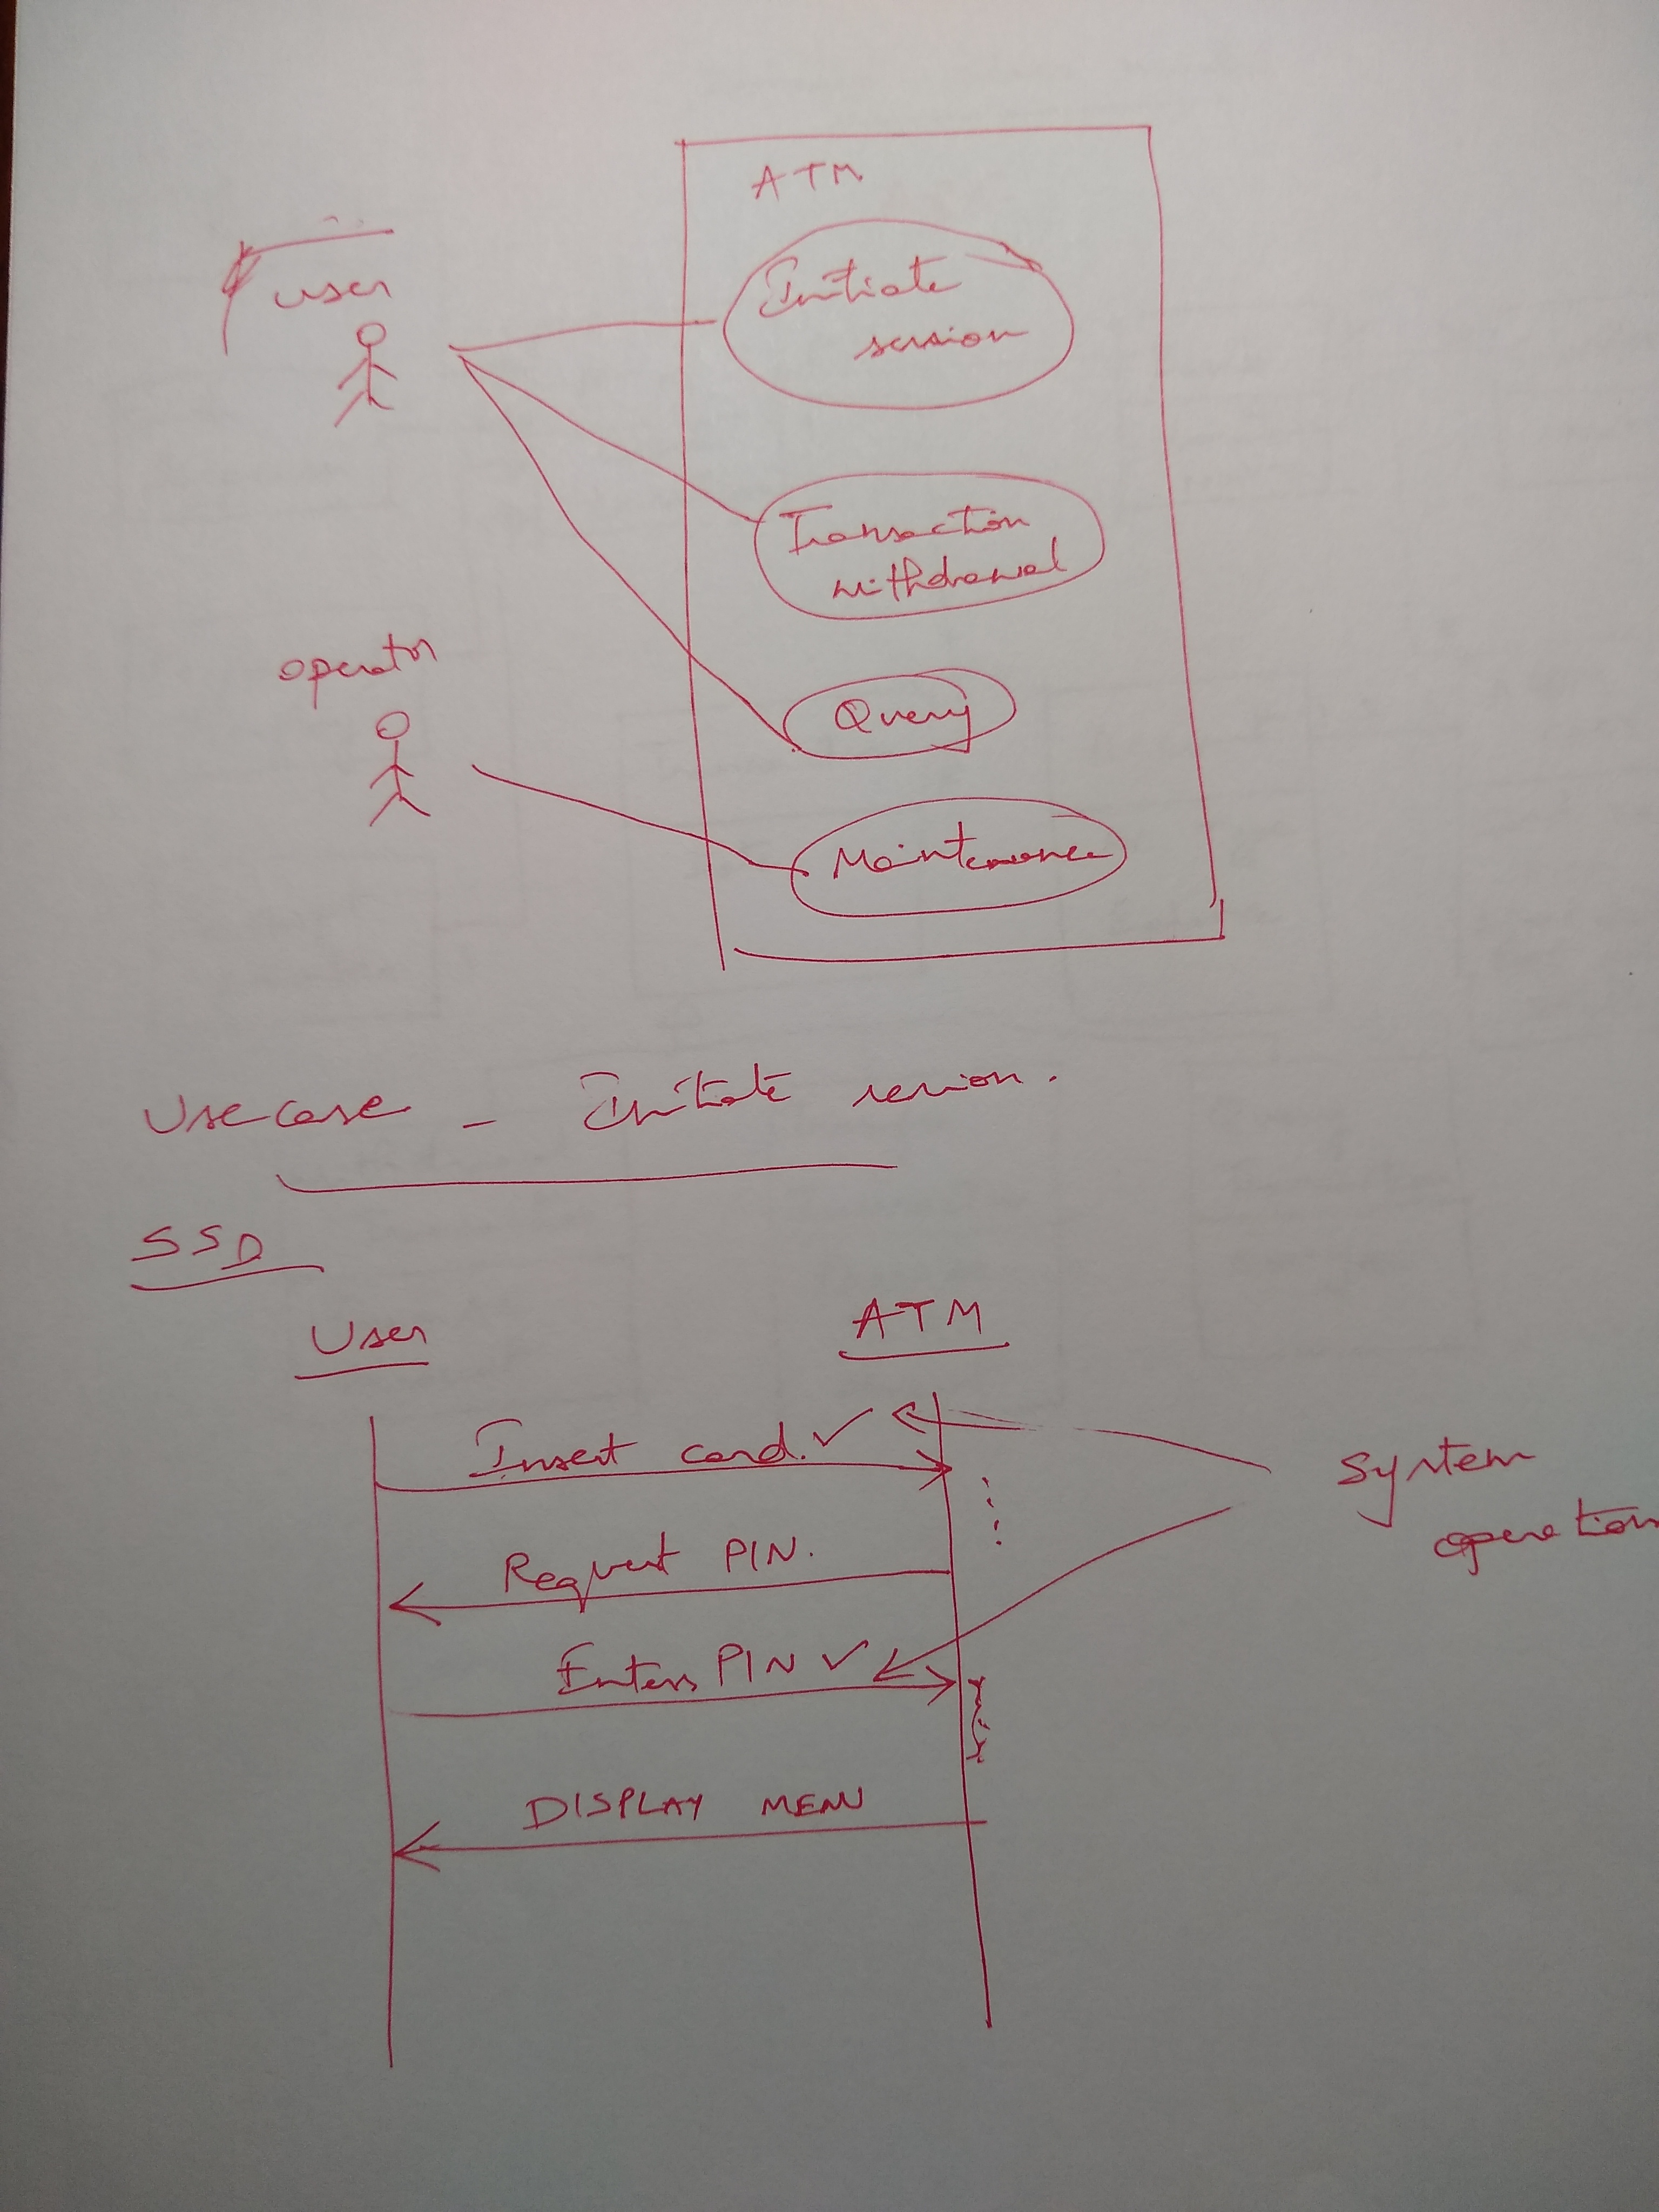 ATM
user
Initiate
session
Transaction
withdrawal
operator
Query
Maintenance
Usecase - Initiate session.
SSD
User
ATM
Insert card. ✓
System
operation
Request PIN.
Enters PIN ✓
DISPLAY MENU